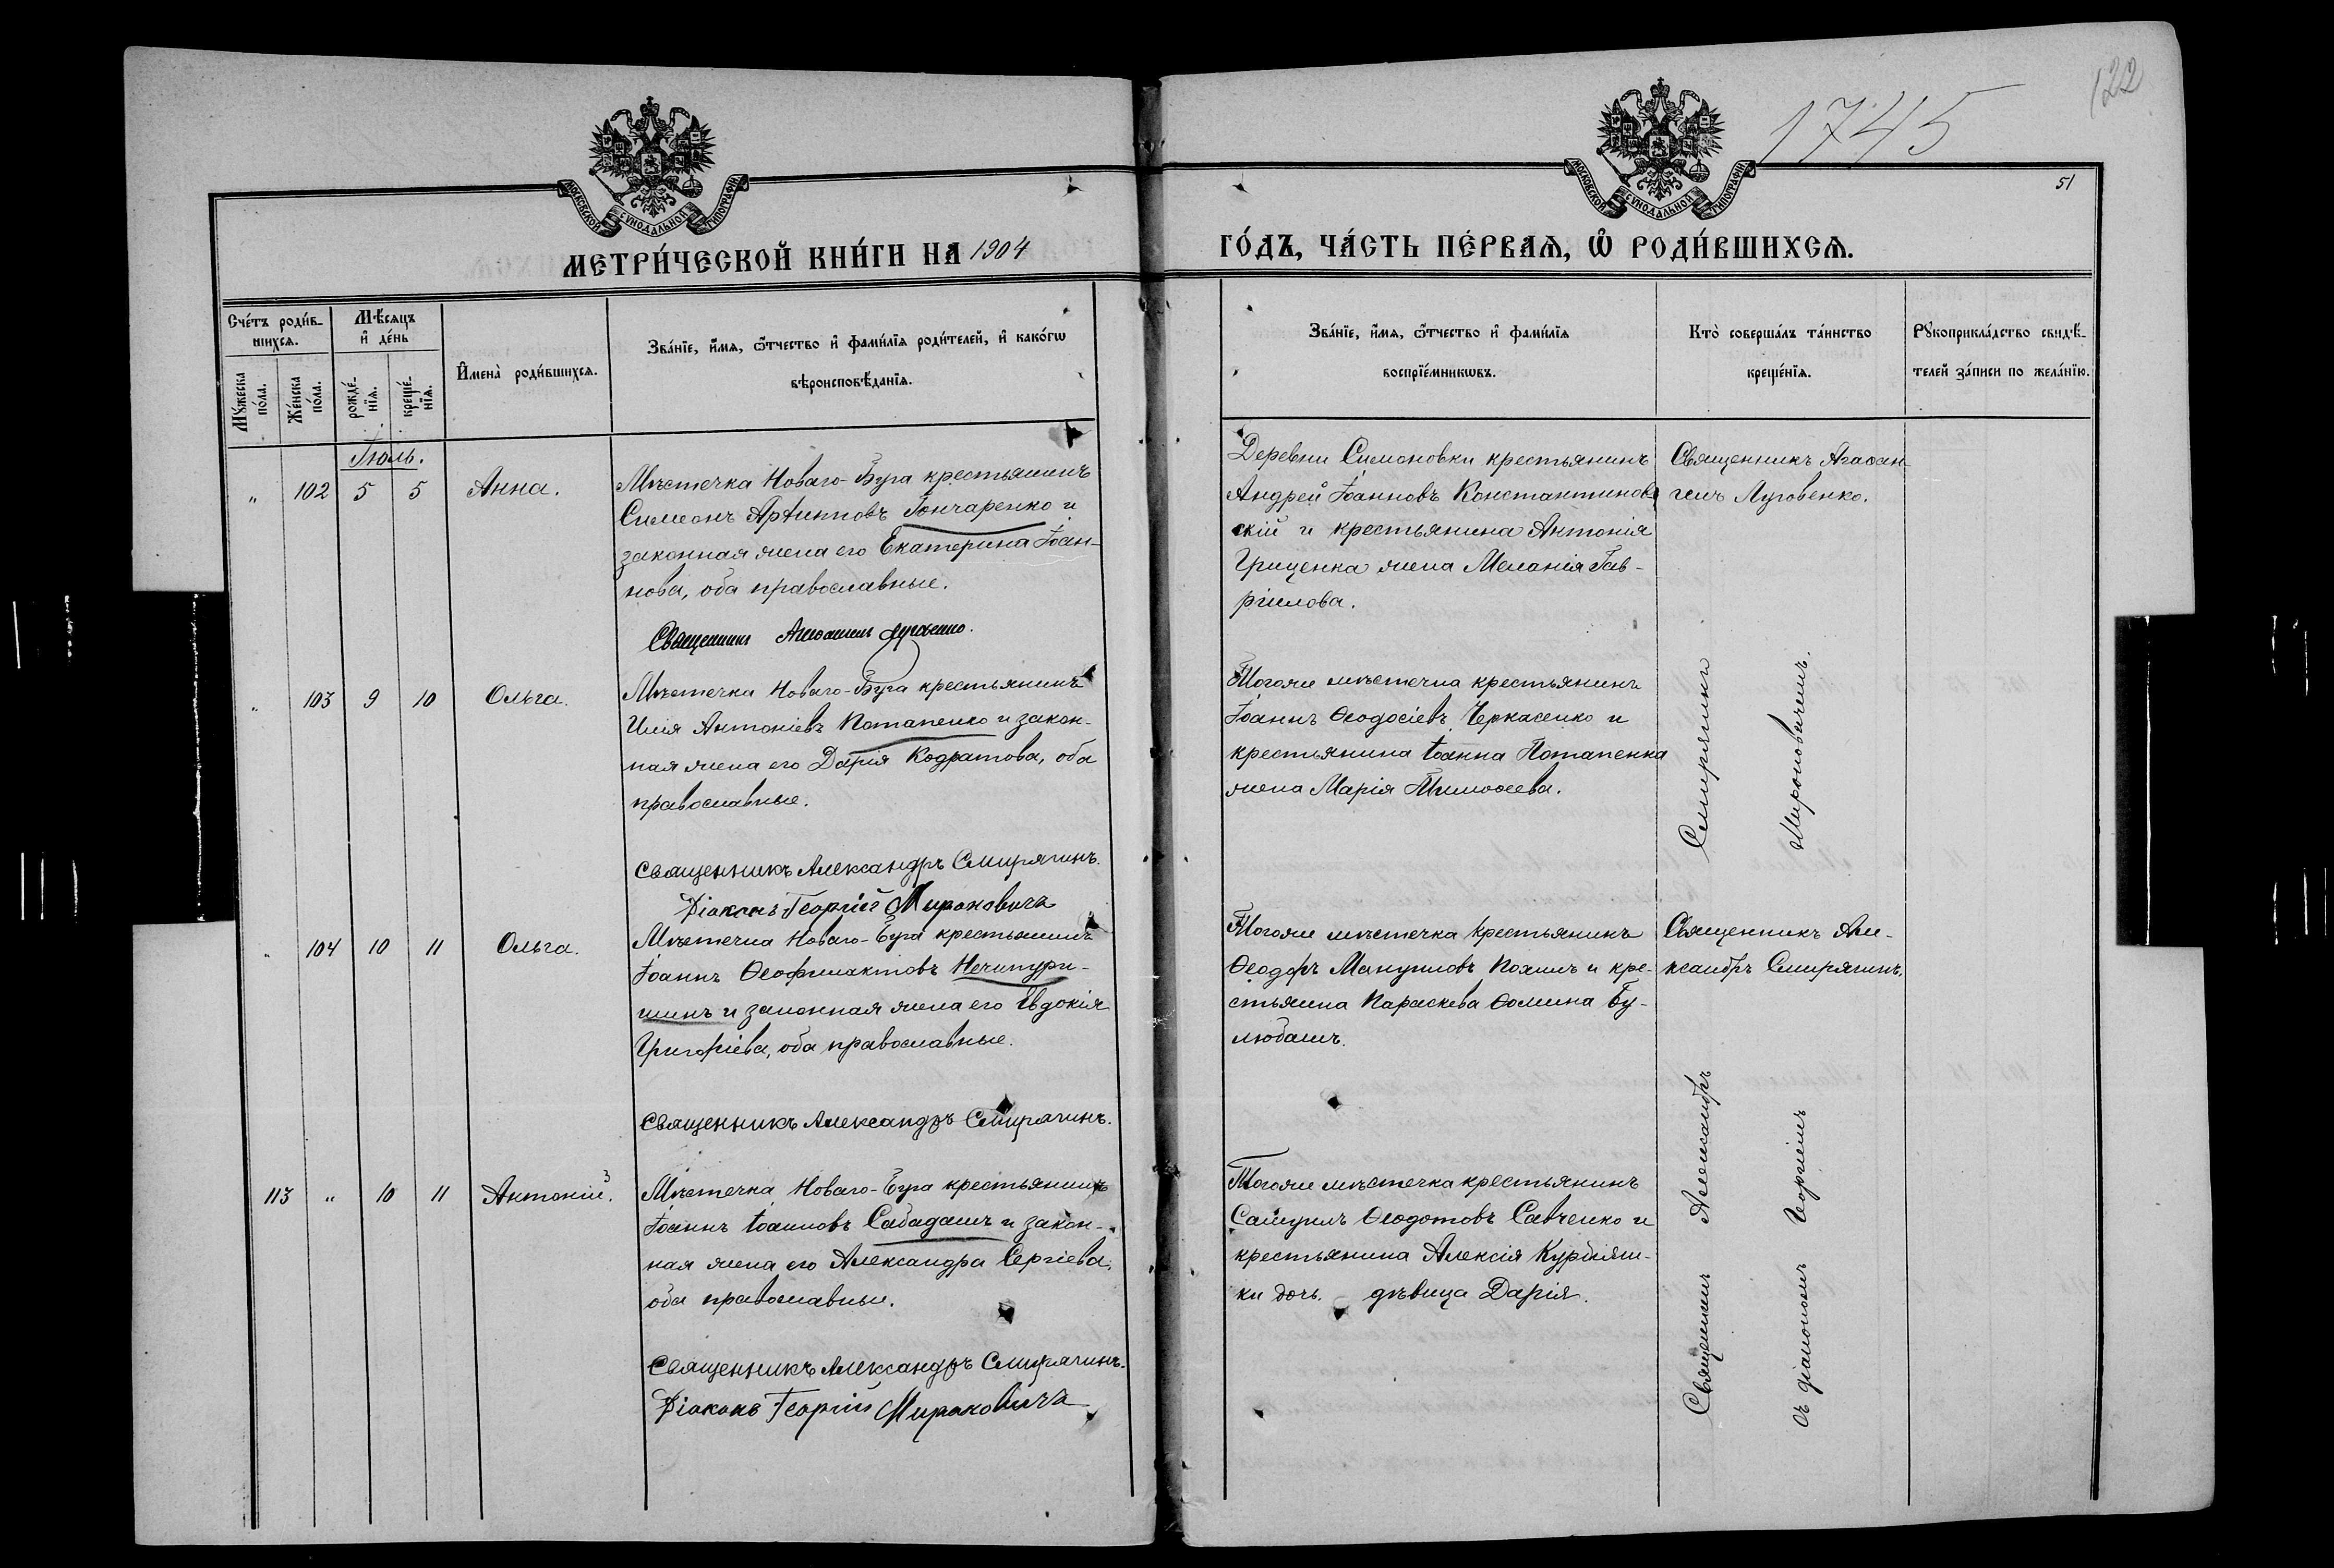 122
1745
51
МОСКОВСКОЙ СѴНОДАЛЬНОЙ ТИПОГРАФІИ
МОСКОВСКОЙ СѴНОДАЛЬНОЙ ТИПОГРАФІИ
МЕТРИ́ЧЕСКОЙ КНИ́ГИ НА 1904
ГО́ДЪ, ЧА́СТЬ ПЕ́РВАѦ, Ѡ҆ РОДИ́ВШИХСѦ.
Сче́тъ роди́в-
шихсѧ.
Мꙋ́жеска по́ла.
Же́нска по́ла.
Мѣ́сяцъ
и҆ де́нь
рожде́-нїѧ.
креще́-нїѧ.
И҆мена̀ роди́вшихсѧ.
Зва́нїе, и҆́мѧ, ѻ҆́тчество и҆ фами́лїѧ роди́телей, и҆ како́гѡ
вѣроисповѣ́данїѧ.
Зва́нїе, и҆́мѧ, ѻ҆́тчество и҆ фами́лїѧ
воспрїе́мникѡвъ.
Кто̀ соверша́лъ та́инство
креще́нїѧ.
Рꙋкоприкла́дство свидѣ́-
телей за́писи по жела́нїю.
Іюль.
" 102 5 5 Анна.
Мѣстечка Новаго-Буга крестьянинъ
Симеонъ Архипповъ Гончаренко и
законная жена его Екатерина Іоан-
нова, оба православные.
Священникъ Агаѳангелъ Луговенко.
Деревни Симоновки крестьянинъ
Андрей Іоанновъ Константинов-
скій и крестьянина Антонія
Гриценка жена Меланія Гав-
ріилова.
Священникъ Агаѳан-
гелъ Луговенко.
" 103 9 10 Ольга.
Мѣстечка Новаго-Буга крестьянинъ
Илія Антоніевъ Потапенко и закон-
ная жена его Дарія Кодратова, оба
православные.
Священникъ Александръ Смирягинъ.
Діаконъ Георгій Мироновичъ
Тогоже мѣстечка крестьянинъ
Іоаннъ Ѳеодосіевъ Черкасенко и
крестьянина Іоанна Потапенка
жена Марія Тимоѳеева.
" 104 10 11 Ольга.
Мѣстечка Новаго-Буга крестьянинъ
Іоаннъ Ѳеофилактовъ Нечипури-
шинъ и законная жена его Евдокія
Григоріева, оба православные.
Священникъ Александръ Смирягинъ.
Тогоже мѣстечка крестьянинъ
Ѳеодоръ Мануиловъ Похилъ и кре-
стьянка Параскева Ѳомина Бу-
любашъ.
Священникъ Але-
ксандръ Смирягинъ.
113 " 10 11 Антоній. 3
Мѣстечка Новаго-Буга крестьянинъ
Іоаннъ Іоанновъ Сабадашъ и закон-
ная жена его Александра Сергіева,
оба православные.
Священникъ Александръ Смирягинъ.
Діаконъ Георгій Мироновичъ
Тогоже мѣстечка крестьянинъ
Самуилъ Ѳеодотовъ Савченко и
крестьянина Алексія
ки дочь. дѣвица Дарія.
Священникъ Александръ Смирягинъ
съ діакономъ Георгіемъ Мироновичемъ.